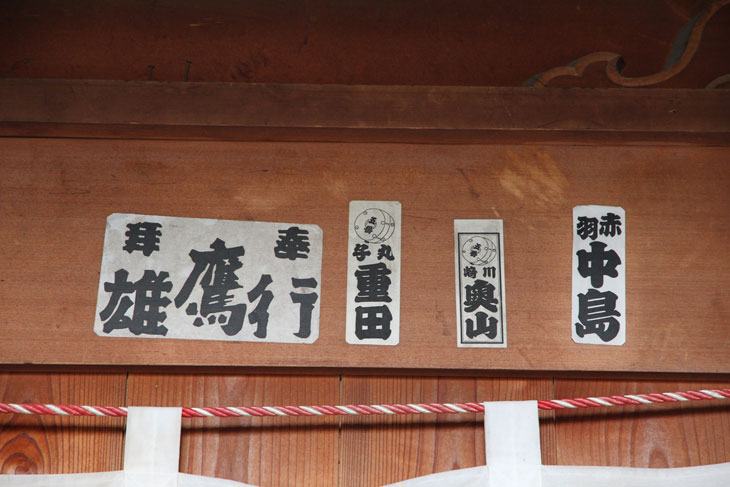 赤羽
中島
川崎
奥山
丸子
重田
奉拝
行鷹雄